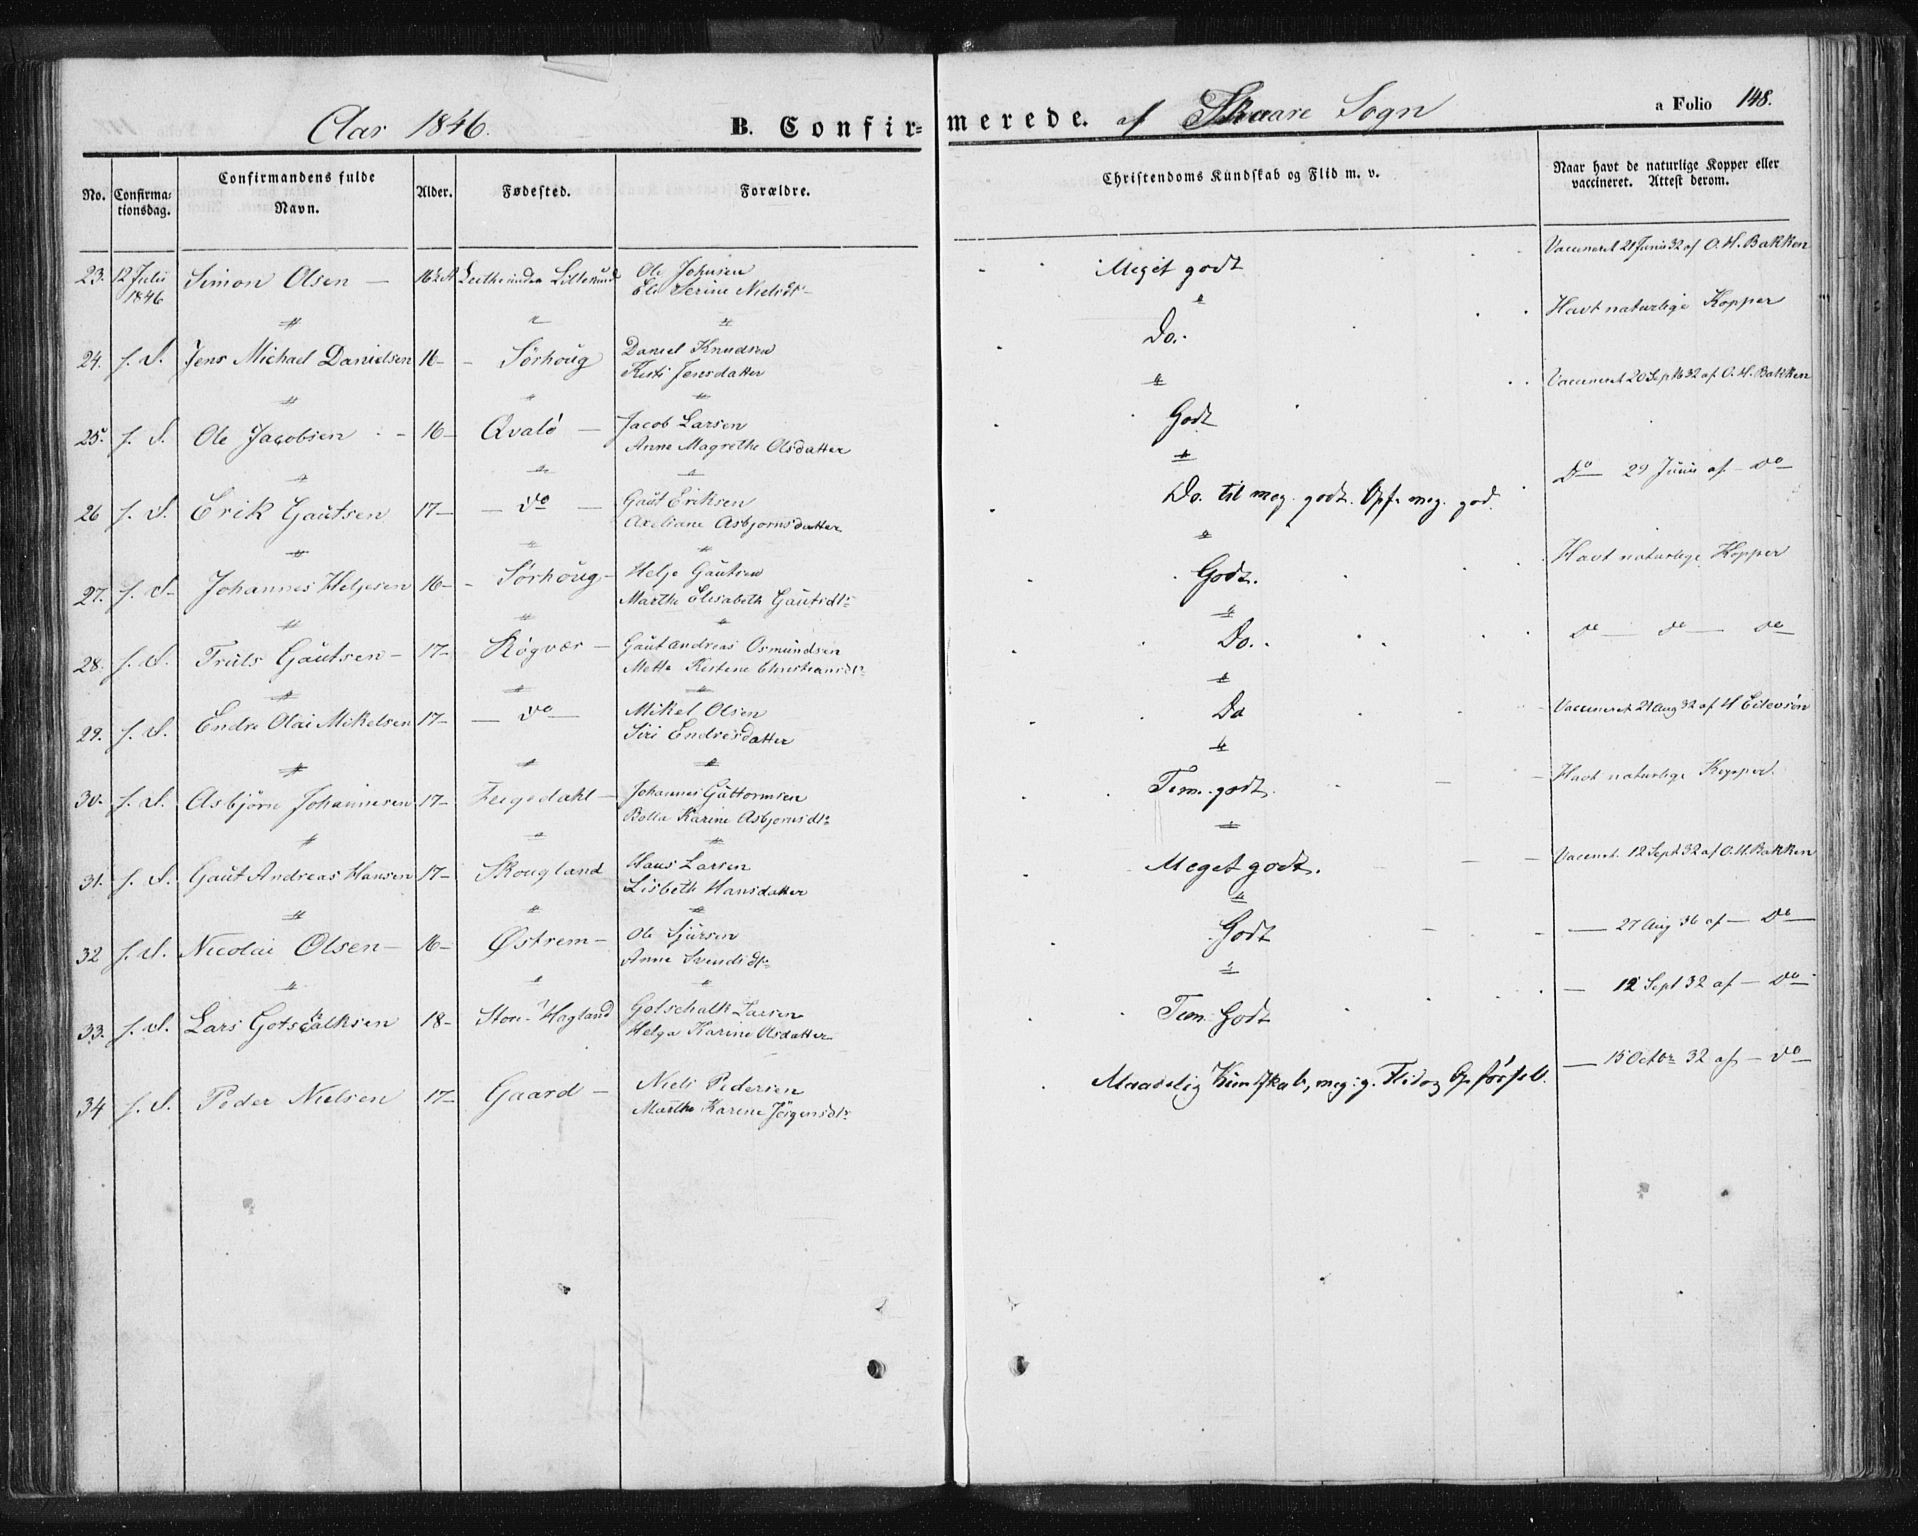 Aar 1846. B. Confirmerede. af Skaare Sogn a Folio 148.
No. Confirmationsdag. Confirmandens fulde Navn. Alder. Fødested. Forældre. Christendoms Kundskab og Flid m. v. Naar havt de naturlige Kopper eller vaccineret. Attest derom.
23. 12 Julii 1846 Simon Olsen – 16 Ole Johnsen Meget godt Vaccineret 21 Junii 32 af O. H. Bakken
Serine Nielsdtr
24. f. S. Jens Michael Danielsen 16 – Sørhoug Daniel Knudsen Do. Havt naturlige Kopper
Kisti Jensdatter
25. f. S. Ole Jacobsen – 16 – Qvalø – Jacob Larsen Godt Vaccineret 20 Sept 32 af O. H. Bakken
Anne Magrethe Olsdatter
26 f. S. Erik Gautsen 17 – – do – Gaut Eriksen Do. til meg. godt. Opf. meg. god. Do – 29 Junii af – do
Axeliane Asbjørnsdatter
27. f. S. Johannes Heljesen 16 – – Sørhoug – Helje Gautsen Godt. Havt naturlige Kopper
Marthe Elisabeth Gautsdtr
28. f. S. Truls Gautsen – 17 – Røgvær – Gautandreas Osmundsen Do. do – do – do
Mette Kistene Christiansdtr
29. f. S. Endre Olai Mikelsen 17 – – do – Mikel Olsen Do Vaccineret 21 Aug 32 af H Eilevsøn
Siri Endresdatter
30. f. S. Asbjørn Johannesen 17 – Feigedahl – Johannes Guttormsen Tem. godt. Havt naturlige Kopper.
Bolla Karine Asbjørnsdtr
31. f. S. Gaut Andreas Hansen 17 – Skougland Hans Larsen Meget godt. Vaccinet. 12 Sept 32 af O. H. Bakken
Lisbeth Hansdatter
32 f. S. Nicolai Olsen – 16 – Østrem – Ole Sjursen Godt – 27 Aug 36 af – Do
Anne Svendsdtr
33. f. S. Lars Gotschalksen 18 – Store-Hagland Gotschalk Larsen Tem. Godt – 12 Sept 32 af – Do
Helga Karine Olsdatter
34 f. S. Peder Nielsen 17 – Gaard – Niels Pedersen Maadelig Kundskab, meg. g. Flid og Opførsel. – 15 Octbr 32 af – do
Marthe Karine Jørgensdtr